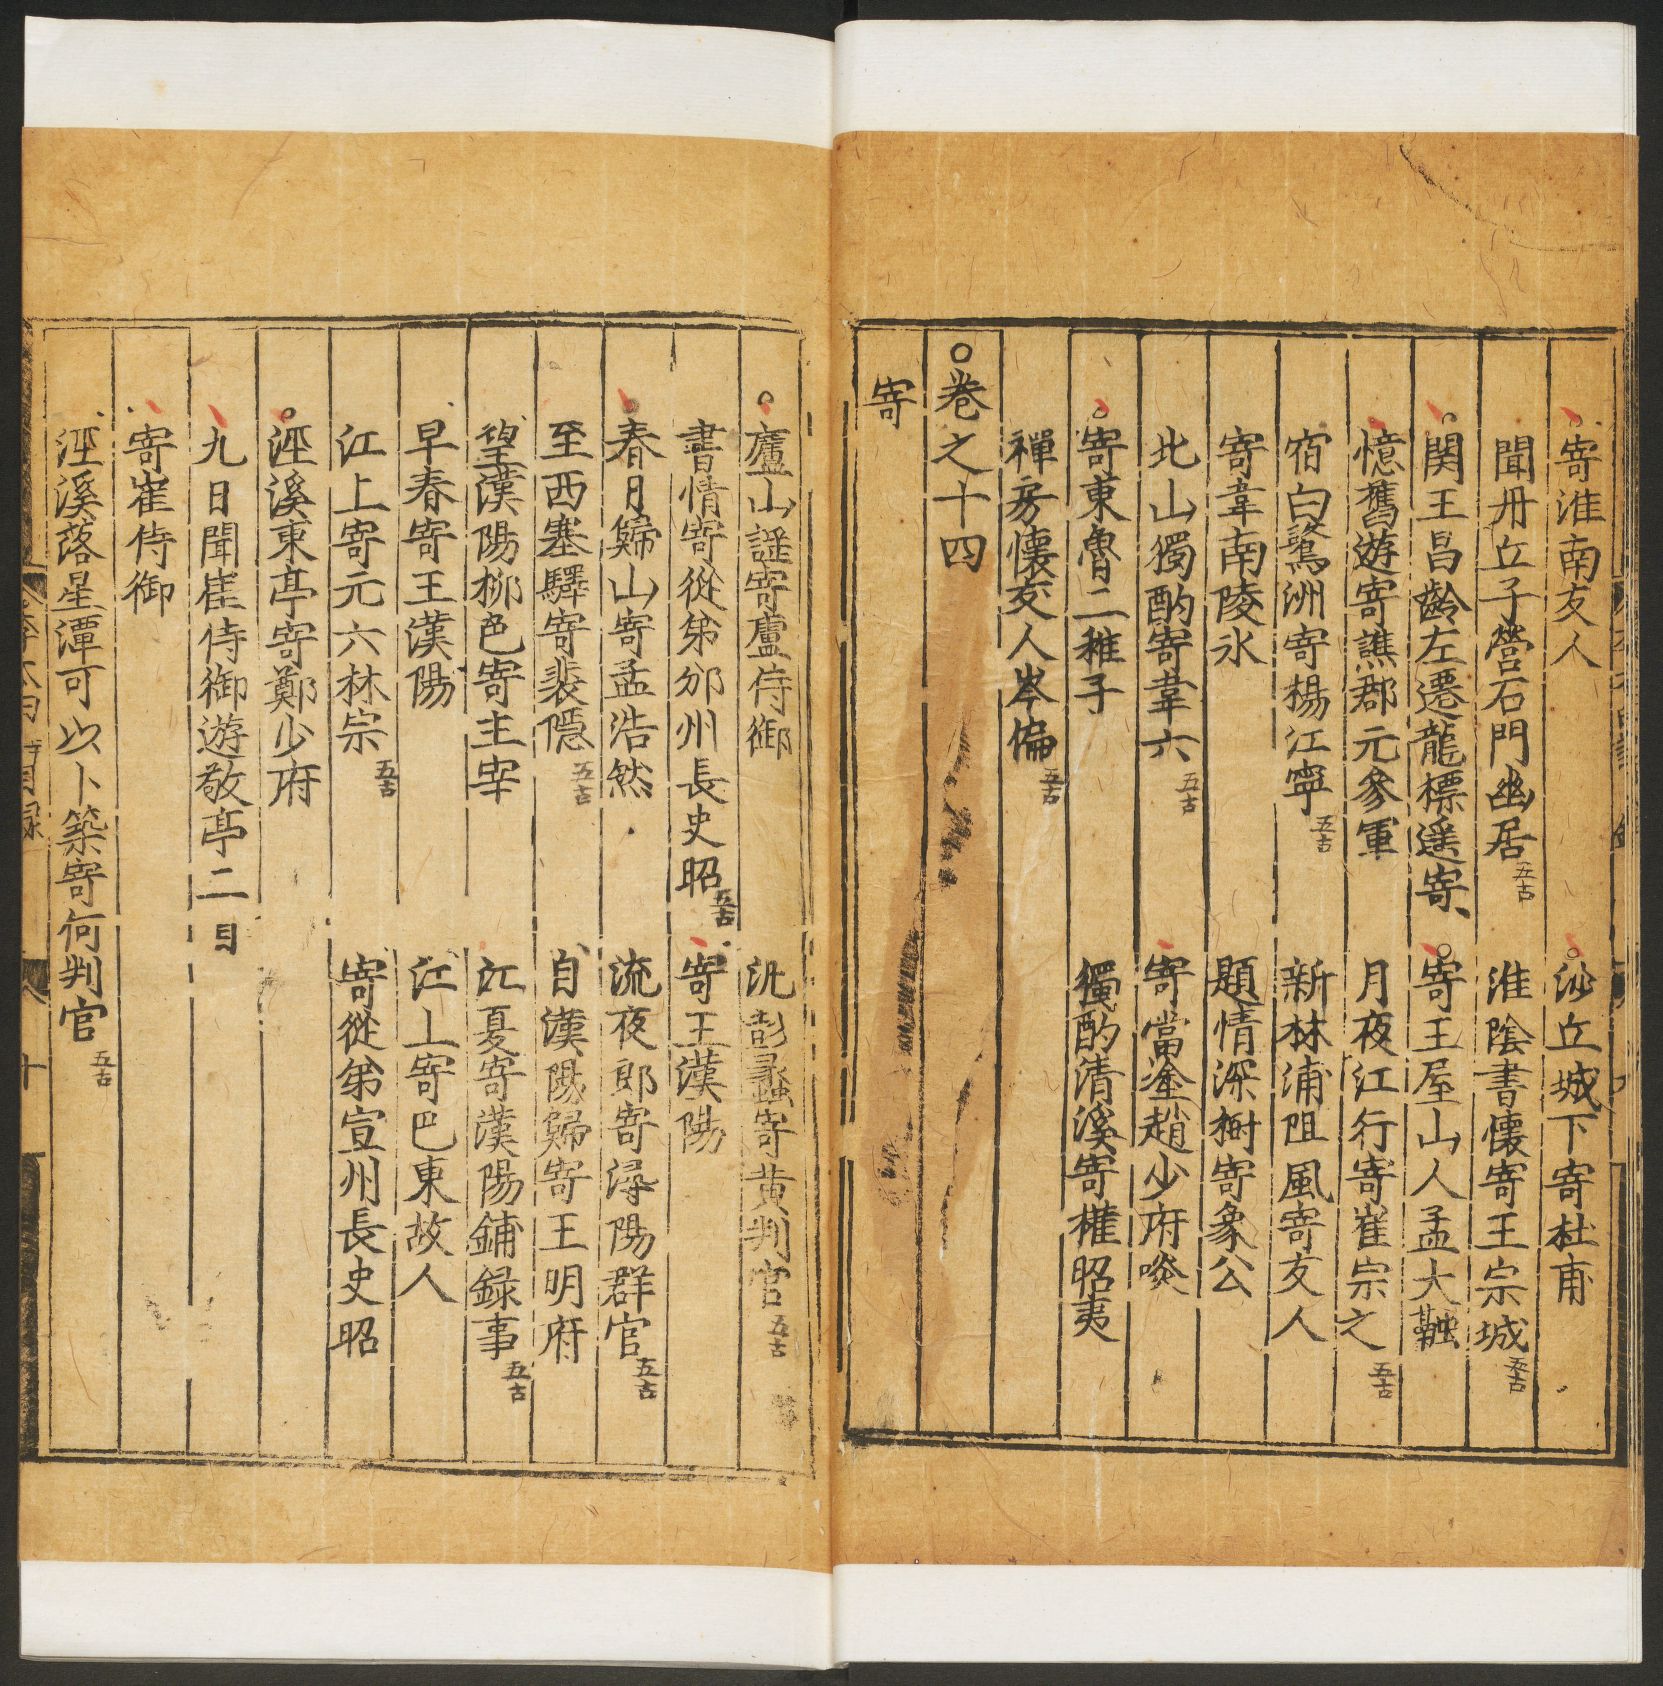 寄淮南友人　沙丘城下寄杜甫
聞丹丘子營石門幽居五古　淮陰書懷寄王宗城五古
聞王昌齡左遷龍標遥寄　寄王屋山人孟大融
憶舊遊寄譙郡元參軍　月夜江行寄崔宗之五古
宿白鷺洲寄楊江寧五古　新林浦阻風寄友人
寄韋南陵氷　題情深樹寄象公
北山獨酌寄韋六五古　寄當塗趙少府炎
寄東魯二稚子　獨酌清溪寄權昭夷
禪房懷友人岑倫五古
卷之十四
寄
廬山謡寄盧侍御　汎彭蠡寄黄判官五古
書情寄從弟邠州長史昭五古　寄王漢陽
春月歸山寄孟浩然　流夜郎寄潯陽群官五古
至西塞驛寄裴隱五古　自漢陽歸寄王明府
望漢陽柳色寄主宰　江夏寄漢陽鋪録事五古
早春寄王漢陽　江上寄巴東故人
江上寄元六林宗五古　寄從弟宣州長史昭
涇溪東亭寄鄭少府
九日聞崔侍御遊敬亭二目
寄崔侍御
涇溪落星潭可以卜築寄何判官五古
李太白詩目録　十